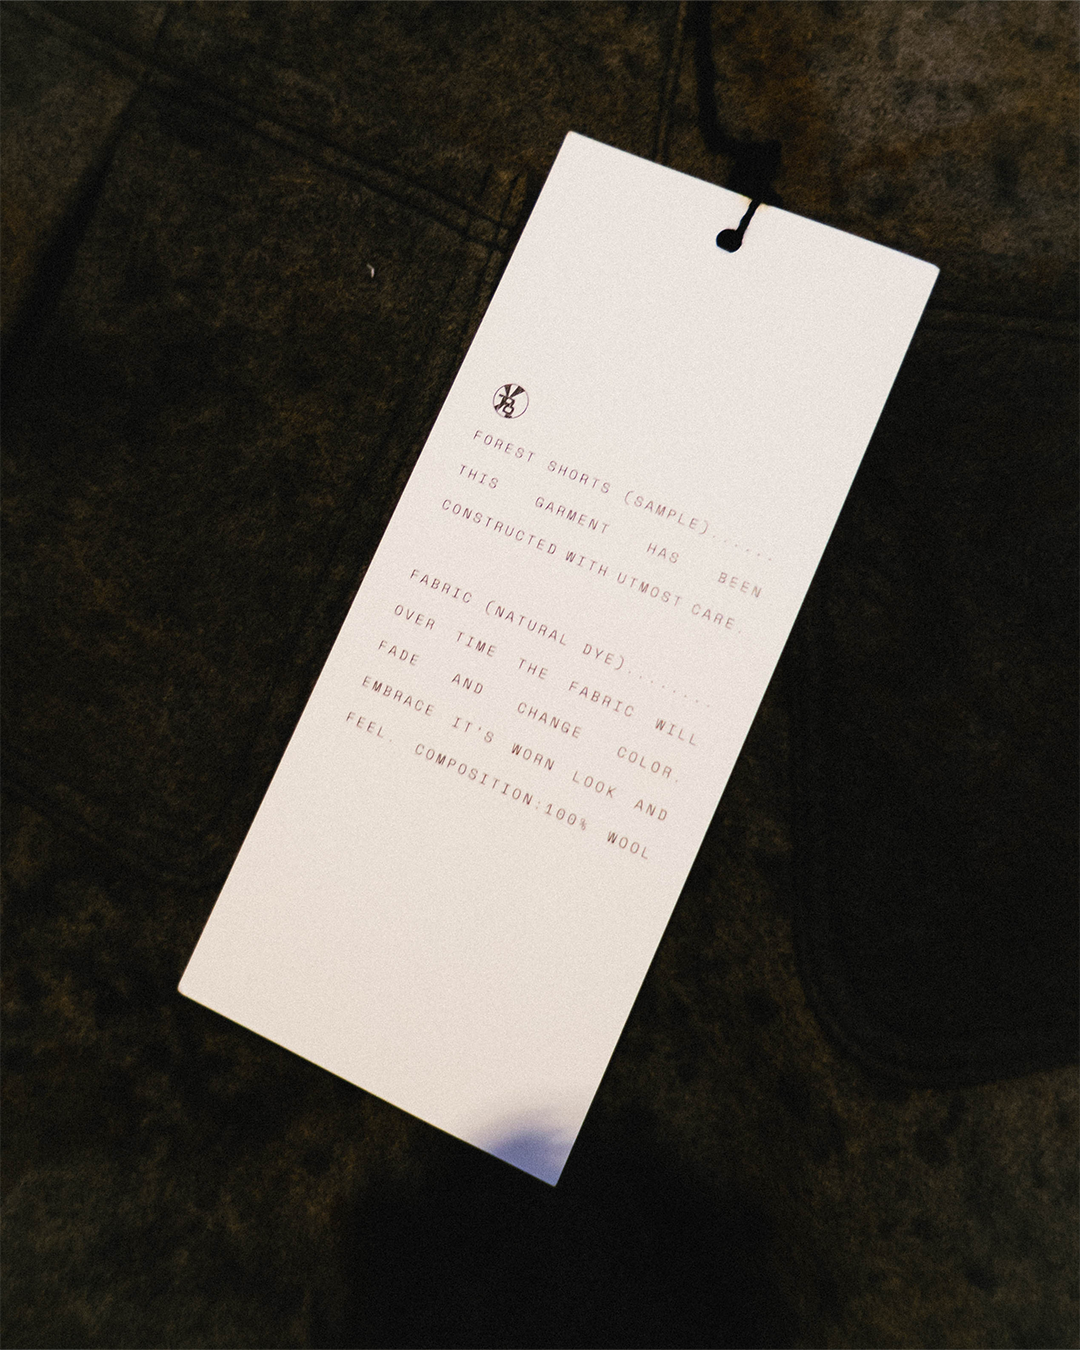 FOREST SHORTS (SAMPLE)......
THIS GARMENT HAS BEEN
CONSTRUCTED WITH UTMOST CARE.
FABRIC (NATURAL DYE)........
OVER TIME THE FABRIC WILL
FADE AND CHANGE COLOR.
EMBRACE IT'S WORN LOOK AND
FEEL. COMPOSITION:100% WOOL